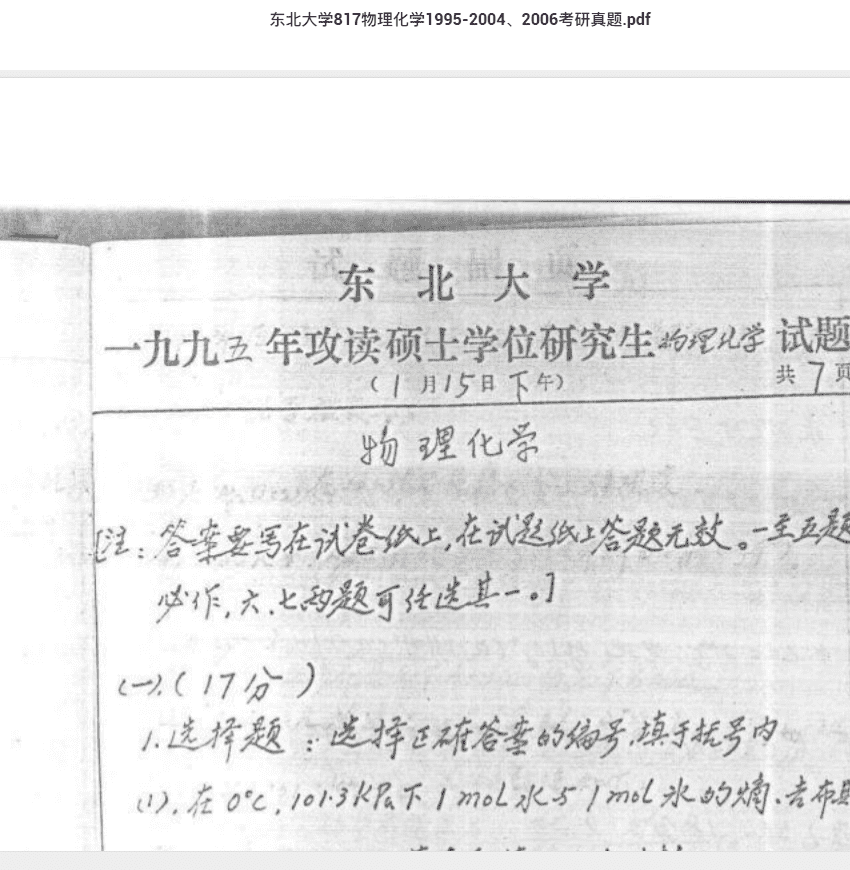 东北大学817物理化学1995-2004、2006考研真题.pdf
东 北 大 学
一九九五年攻读硕士学位研究生物理化学试题
（1月15日下午）
共7页
物理化学
[注：答案要写在试卷纸上，在试题纸上答题无效。一至五题
必作，六、七两题可任选其一。]
(一)、(17分)
1.选择题：选择正确答案的编号，填于括号内
(1)、在0℃，101.3KPa下1mol水与1mol冰的熵、吉布